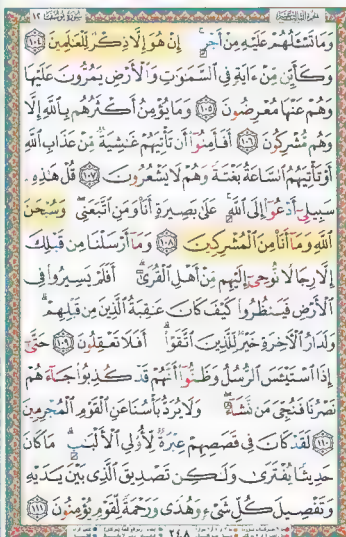 سُورَةُ يُوسُف ١٢
وَمَا تَسْـَٔلُهُمْ عَلَيْهِ مِنْ أَجْرٍ ۚ إِنْ هُوَ إِلَّا ذِكْرٌ لِّلْعَٰلَمِينَ ١٠٤
وَكَأَيِّن مِّنْ ءَايَةٍ فِى ٱلسَّمَٰوَٰتِ وَٱلْأَرْضِ يَمُرُّونَ عَلَيْهَا
وَهُمْ عَنْهَا مُعْرِضُونَ ١٠٥ وَمَا يُؤْمِنُ أَكْثَرُهُم بِٱللَّهِ إِلَّا
وَهُم مُّشْرِكُونَ ١٠٦ أَفَأَمِنُوٓا۟ أَن تَأْتِيَهُمْ غَٰشِيَةٌ مِّنْ عَذَابِ ٱللَّهِ
أَوْ تَأْتِيَهُمُ ٱلسَّاعَةُ بَغْتَةً وَهُمْ لَا يَشْعُرُونَ ١٠٧ قُلْ هَٰذِهِۦ
سَبِيلِىٓ أَدْعُوٓا۟ إِلَى ٱللَّهِ ۚ عَلَىٰ بَصِيرَةٍ أَنَا۠ وَمَنِ ٱتَّبَعَنِى ۖ وَسُبْحَٰنَ
ٱللَّهِ وَمَآ أَنَا۠ مِنَ ٱلْمُشْرِكِينَ ١٠٨ وَمَآ أَرْسَلْنَا مِن قَبْلِكَ
إِلَّا رِجَالًا نُّوحِىٓ إِلَيْهِم مِّنْ أَهْلِ ٱلْقُرَىٰٓ ۗ أَفَلَمْ يَسِيرُوا۟ فِى
ٱلْأَرْضِ فَيَنظُرُوا۟ كَيْفَ كَانَ عَٰقِبَةُ ٱلَّذِينَ مِن قَبْلِهِمْ ۗ
وَلَدَارُ ٱلْـَٔاخِرَةِ خَيْرٌ لِّلَّذِينَ ٱتَّقَوْا۟ ۗ أَفَلَا تَعْقِلُونَ ١٠٩ حَتَّىٰٓ
إِذَا ٱسْتَيْـَٔسَ ٱلرُّسُلُ وَظَنُّوٓا۟ أَنَّهُمْ قَدْ كُذِبُوا۟ جَآءَهُمْ
نَصْرُنَا فَنُجِّىَ مَن نَّشَآءُ ۖ وَلَا يُرَدُّ بَأْسُنَا عَنِ ٱلْقَوْمِ ٱلْمُجْرِمِينَ
١١٠ لَقَدْ كَانَ فِى قَصَصِهِمْ عِبْرَةٌ لِّأُو۟لِى ٱلْأَلْبَٰبِ ۗ مَا كَانَ
حَدِيثًا يُفْتَرَىٰ وَلَٰكِن تَصْدِيقَ ٱلَّذِى بَيْنَ يَدَيْهِ
وَتَفْصِيلَ كُلِّ شَىْءٍ وَهُدًى وَرَحْمَةً لِّقَوْمٍ يُؤْمِنُونَ ١١١
٢٤٨